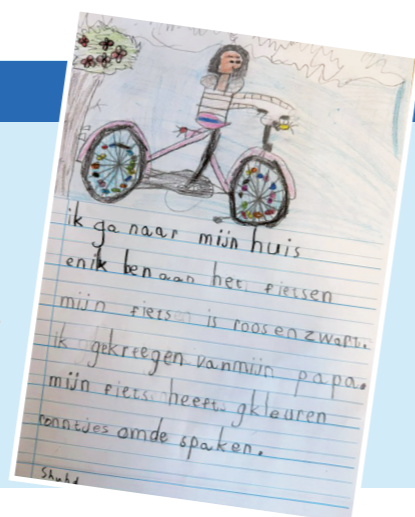 ik ga naar mijn huis
en ik ben aan het fietsen
mijn fiets is roos en zwart.
ik gekreegen van mijn papa.
mijn fiets heeft gkleuren
ronntjes om de spaken.